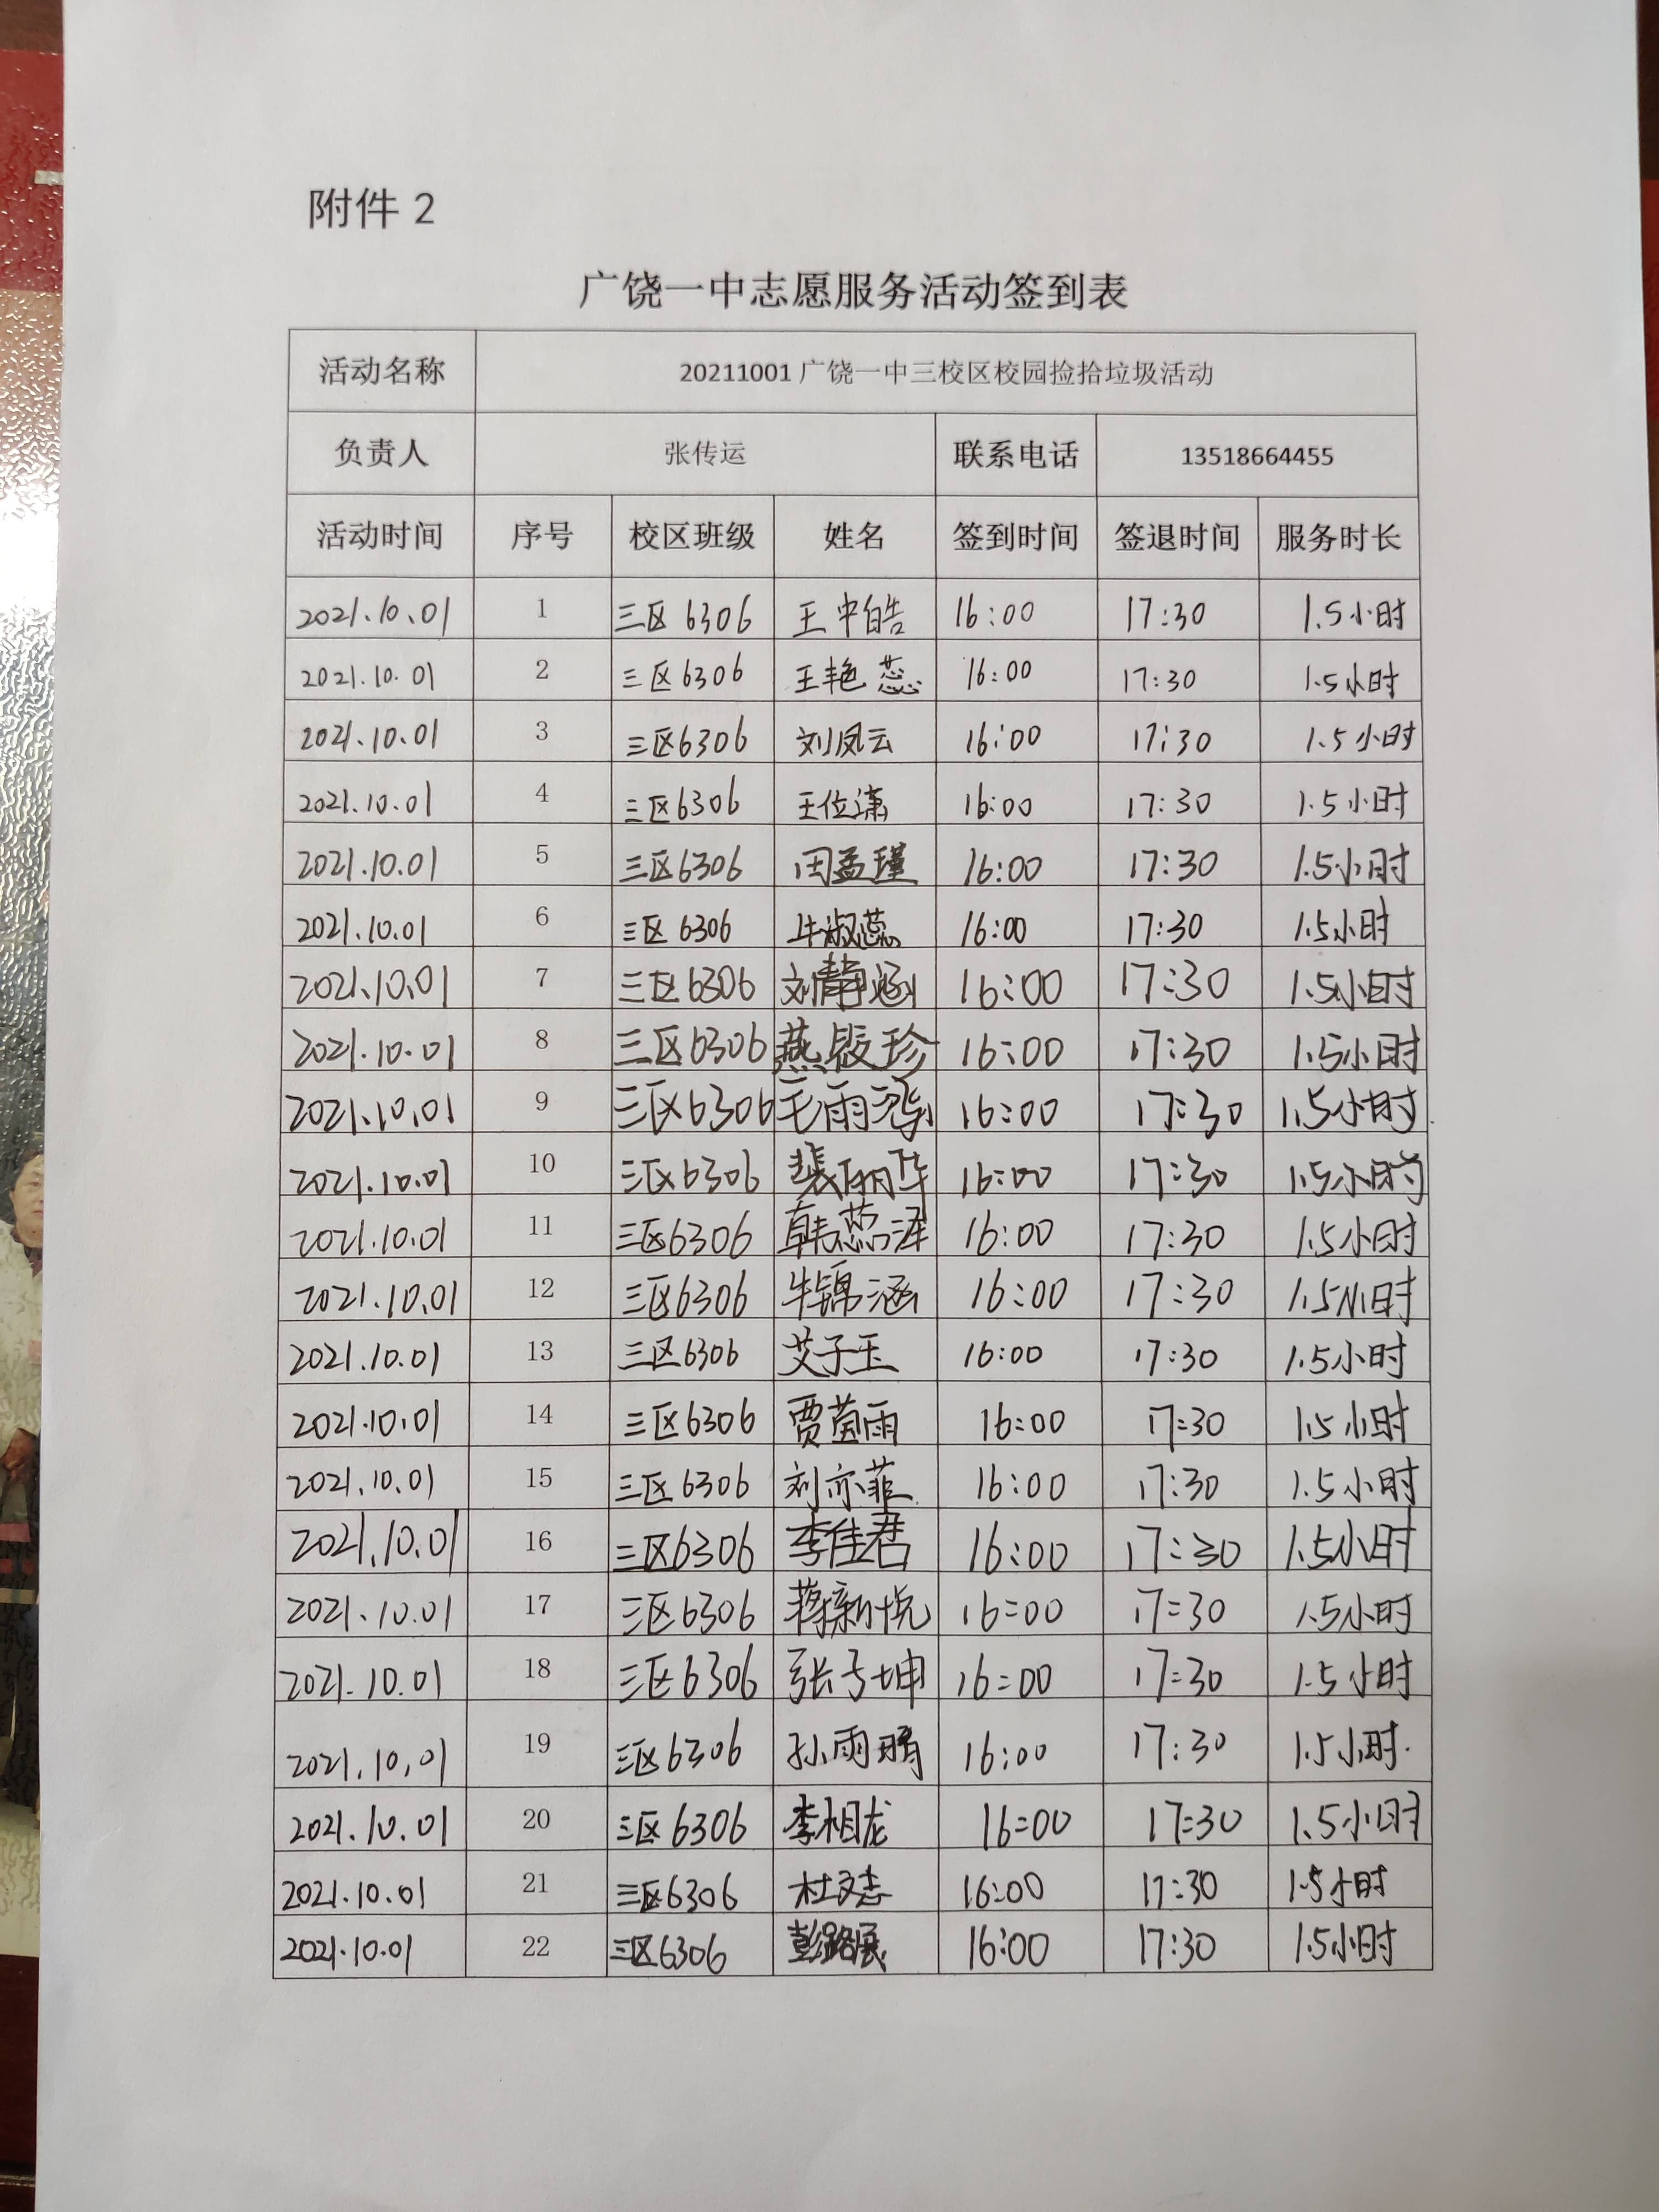 附件 2
广饶一中志愿服务活动签到表
活动名称 20211001 广饶一中三校区校园捡拾垃圾活动
负责人 张传运 联系电话 13518664455
活动时间 序号 校区班级 姓名 签到时间 签退时间 服务时长
2021.10.01 1 三区 6306 王中皓 16:00 17:30 1.5小时
2021.10.01 2 三区 6306 王艳蕊 16:00 17:30 1.5小时
2021.10.01 3 三区6306 刘凤云 16:00 17:30 1.5小时
2021.10.01 4 三区6306 王位潇 16:00 17:30 1.5小时
2021.10.01 5 三区6306 田孟瑾 16:00 17:30 1.5小时
2021.10.01 6 三区 6306 牛淑蕊 16:00 17:30 1.5小时
2021.10.01 7 三区6306 刘静涵 16:00 17:30 1.5小时
2021.10.01 8 三区6306 16:00 17:30 1.5小时
2021.10.01 9 三区6306 16:00 17:30 1.5小时
2021.10.01 10 三区6306 16:00 17:30 1.5小时
2021.10.01 11 三区6306 韩蕊泽 16:00 17:30 1.5小时
2021.10.01 12 三区6306 牛锦涵 16:00 17:30 1.5小时
2021.10.01 13 三区6306 艾子玉 16:00 17:30 1.5小时
2021.10.01 14 三区6306 贾茵雨 16:00 17:30 1.5小时
2021.10.01 15 三区6306 刘亦菲 16:00 17:30 1.5小时
2021.10.01 16 三区6306 李佳君 16:00 17:30 1.5小时
2021.10.01 17 三区6306 蒋新悦 16:00 17:30 1.5小时
2021.10.01 18 三区6306 张子坤 16:00 17:30 1.5小时
2021.10.01 19 三区6306 16:00 17:30 1.5小时.
2021.10.01 20 三区6306 李相龙 16:00 17:30 1.5小时
2021.10.01 21 三区6306 杜文志 16:00 17:30 1.5小时
2021.10.01 22 三区6306 彭路展 16:00 17:30 1.5小时